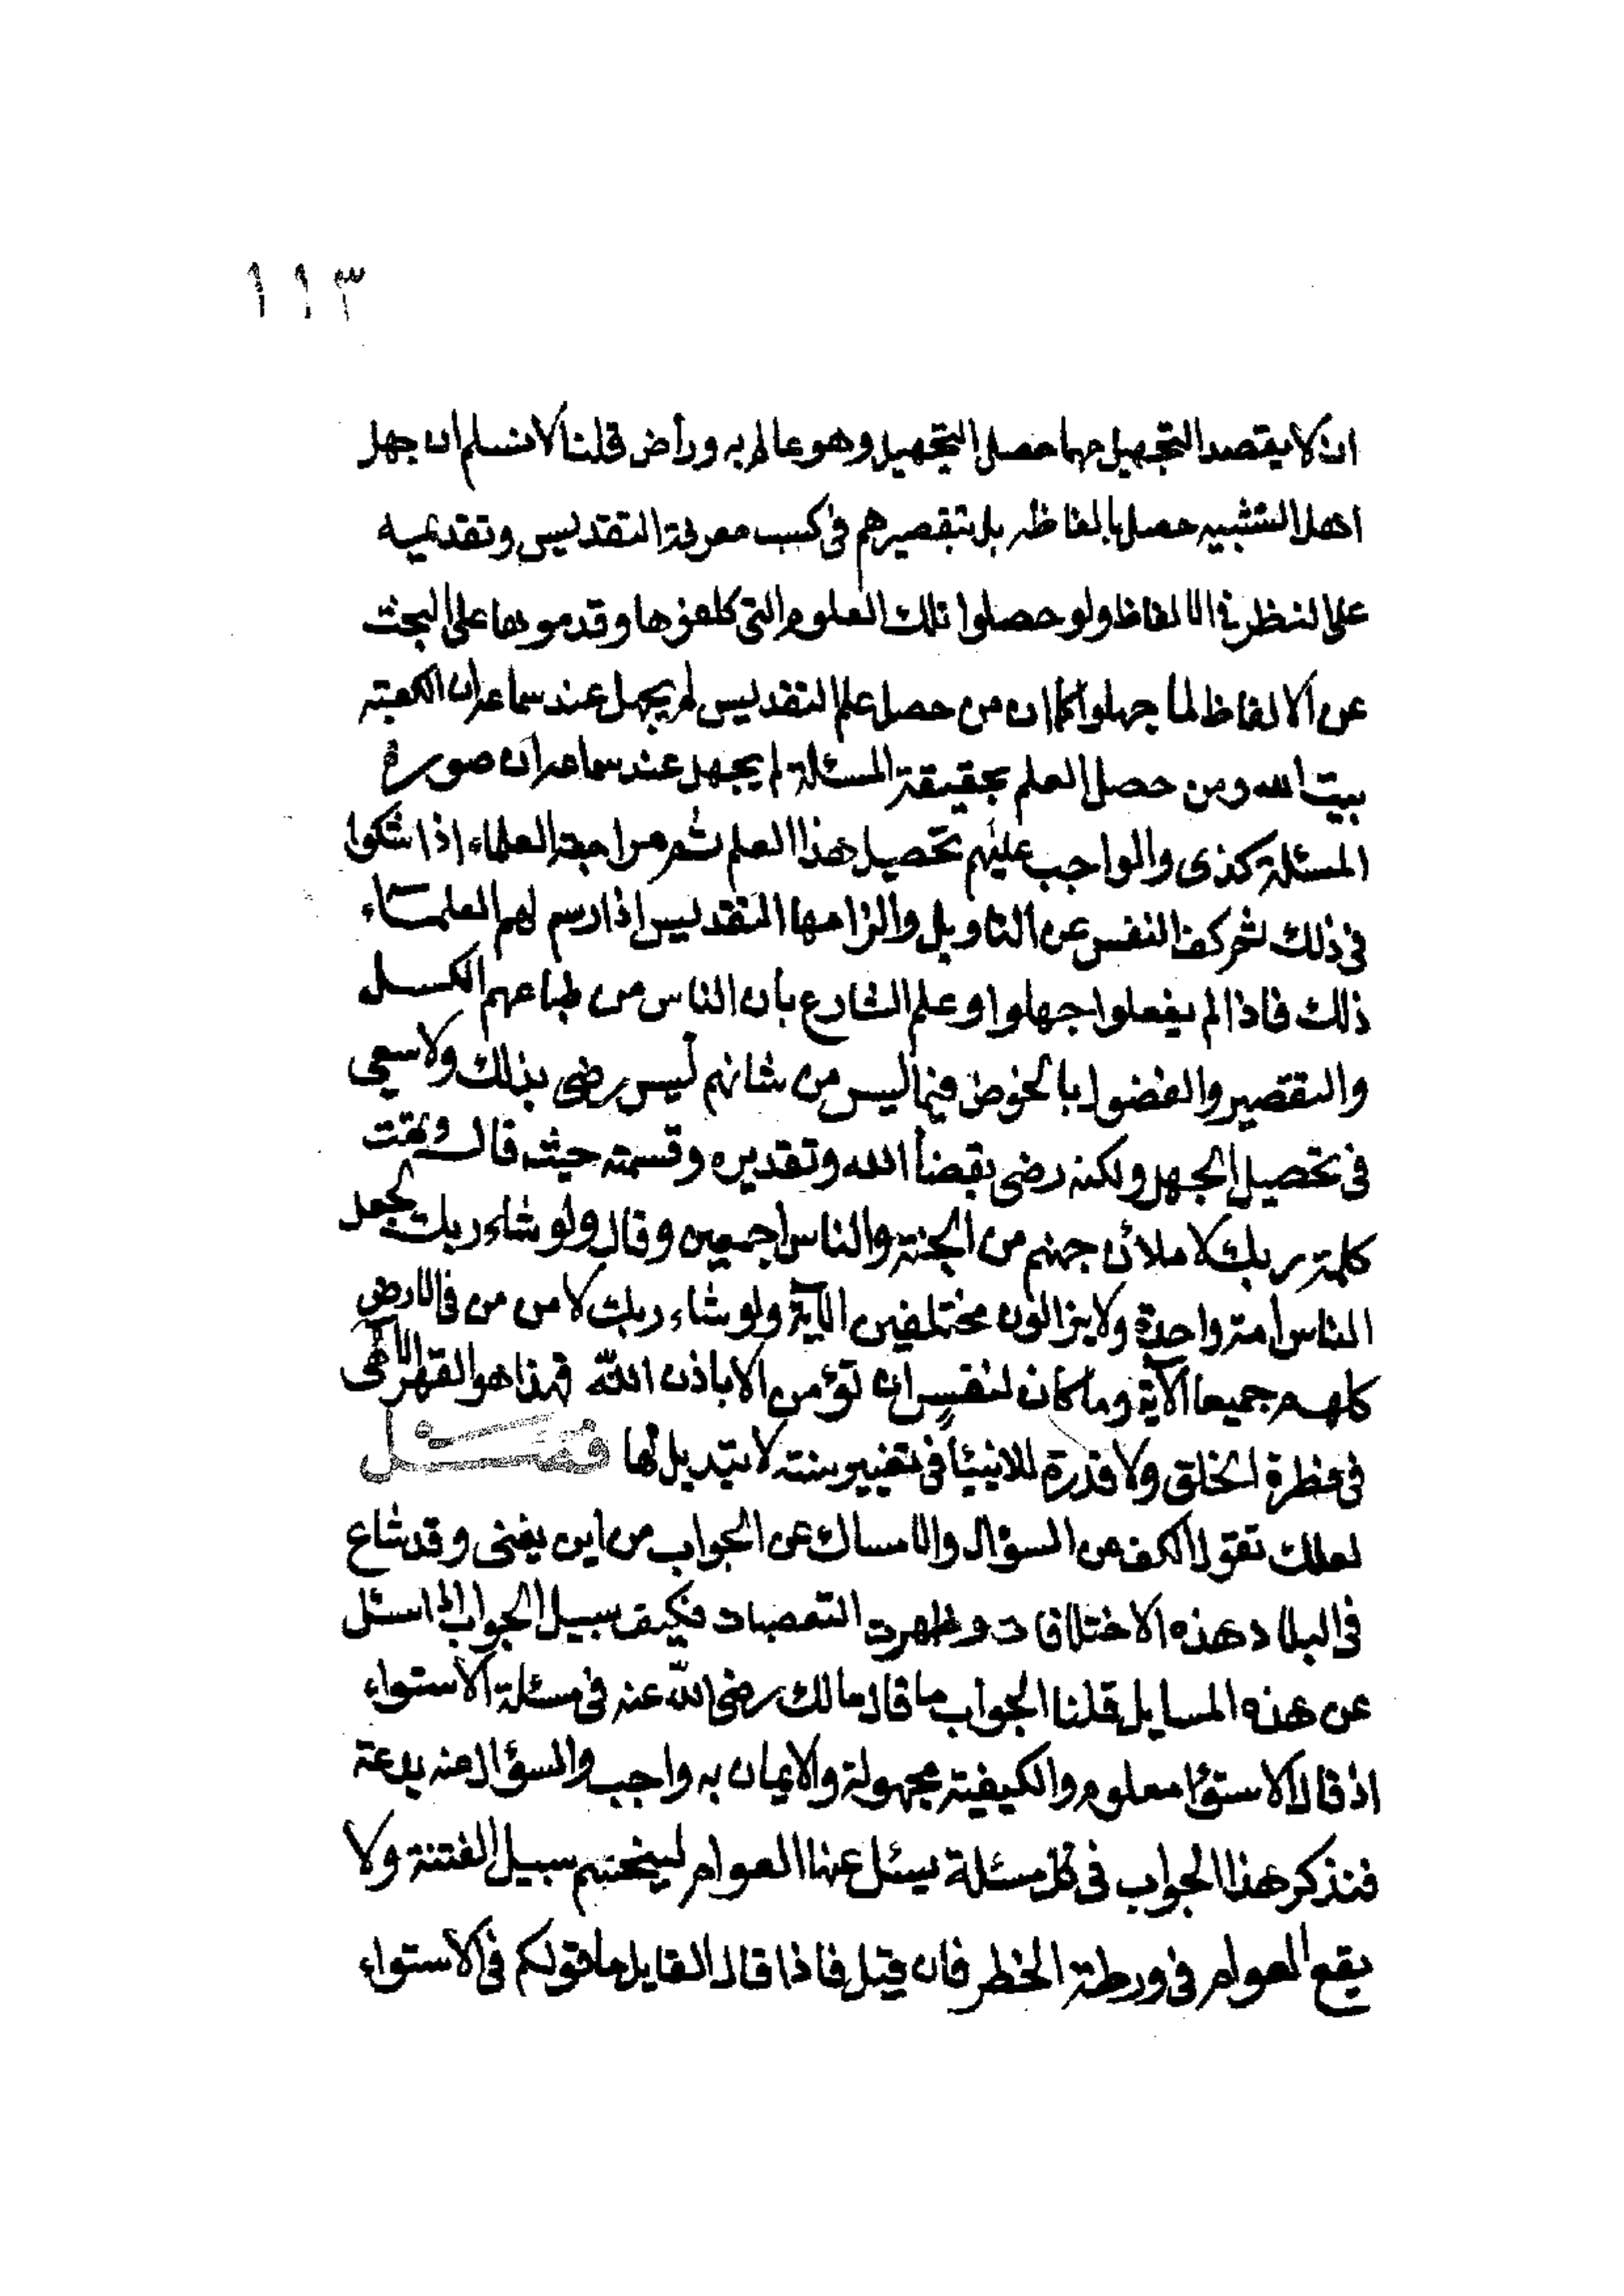 ١١٣
ان لا يقصد التجهيل مهما حصل التجهيل وهو عالم به وراض قلنا لا نسلم ان جهل
اهل التشبيه حصل بالفاظه بل بتقصيرهم فى كسب معرفة التقديس وتقديمه
على النظر فى الالفاظ ولو حصلوا تلك العلوم التى كلفوها وقدموها على البحث
عن الالفاظ لما جهلوا كما ان من حصل علم التقديس لم يجهل عند سماعه ان الكعبة
بيت الله ومن حصل العلم بحقيقة المسئلة لم يجهل عند سماعه ان صورة
المسئلة كذى والواجب عليهم تحصيل هذا العلم ثم مراجعة العلماء اذا شكوا
فى ذلك ثم كف النفس عن التاويل والزامها التقديس اذا رسم لهم العلماء
ذلك فاذا لم يفعلوا جهلوا وعلم الشارع بان الناس من طباعهم الكسل
والتقصير والفضول بالخوض فيما ليس من شانهم ليس رضى بذلك ولا سعى
فى تحصيل الجهل ولكنه رضى بقضاء الله وتقديره وقسمته حيث قال وتمت
كلمة ربك لاملائن جهنم من الجنة والناس اجمعين وقال ولو شاء ربك لجعل
الناس امة واحدة ولا يزالون مختلفين الآية ولو شاء ربك لامن من فى الارض
كلهم جميعا الآية وما كان لنفسٍ ان تؤمن الا باذن الله فهذا هو القهر الالهى
فى فطرة الخلق ولا قدرة للانبيا فى تغيير سنته لا تبديل لها فصل
لعلك تقول الكف عن السؤال والامساك عن الجواب من اين يغنى وقد شاع
فى البلاد هذه الاختلافات وظهرت التعصبات فكيف سبيل الجواب اذا سئل
عن هذه المسايل قلنا الجواب ما قال مالك رضى الله عنه فى مسئلة الاستواء
اذ قال الاستوا معلوم والكيفية مجهولة والايمان به واجب والسؤال عنه بدعة
فنذكر هذا الجواب فى كل مسئلة يسئل عنها العوام لينحسم سبيل الفتنة ولا
يقع العوام فى ورطة الخطر فان قيل فاذا قال القايل ما قولكم فى الاستواء